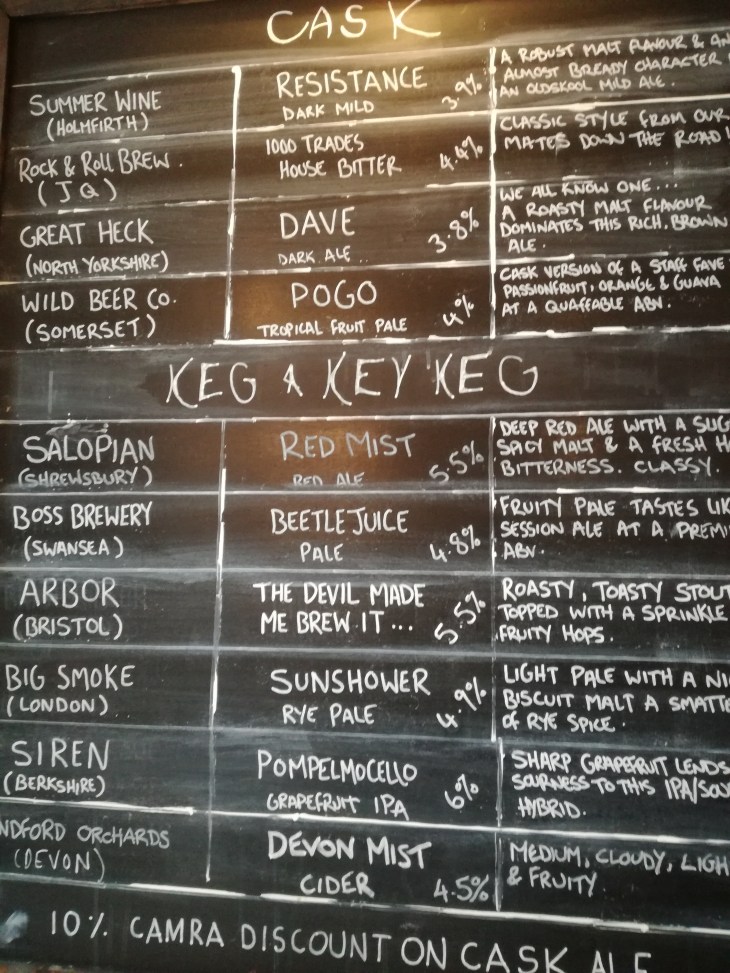 CASK
SUMMER WINE
(HOLMFIRTH)
RESISTANCE
DARK MILD
3.9%
A ROBUST MALT FLAVOUR & AN
ALMOST BREADY CHARACTER
AN OLDSKOOL MILD ALE.
ROCK & ROLL BREW.
(JQ)
1000 TRADES
HOUSE BITTER
4.4%
CLASSIC STYLE FROM OUR
MATES DOWN THE ROAD!
GREAT HECK
(NORTH YORKSHIRE)
DAVE
DARK ALE..
3.8%
WE ALL KNOW ONE...
A ROASTY MALT FLAVOUR
DOMINATES THIS RICH, BROWN
ALE.
WILD BEER CO.
(SOMERSET)
POGO
TROPICAL FRUIT PALE
4%
CASK VERSION OF A STAFF FAVE
PASSIONFRUIT, ORANGE & GUAVA
AT A QUAFFABLE ABV.
KEG & KEY KEG
SALOPIAN
(SHREWSBURY)
RED MIST
RED ALE
5.5%
DEEP RED ALE WITH A SUG
SPICY MALT & A FRESH H
BITTERNESS. CLASSY.
BOSS BREWERY
(SWANSEA)
BEETLEJUICE
PALE
4.8%
FRUITY PALE TASTES LIK
SESSION ALE AT A PREMI
ABV.
ARBOR
(BRISTOL)
THE DEVIL MADE
ME BREW IT...
5.5%
ROASTY, TOASTY STOUT
TOPPED WITH A SPRINKLE
FRUITY HOPS.
BIG SMOKE
(LONDON)
SUNSHOWER
RYE PALE
4.9%
LIGHT PALE WITH A NI
BISCUIT MALT A SMATTE
OF RYE SPICE.
SIREN
(BERKSHIRE)
POMPELMOCELLO
GRAPEFRUIT IPA
6%
SHARP GRAPEFRUIT LENDS
SOURNESS TO THIS IPA/SOU
HYBRID.
NDFORD ORCHARDS
(DEVON)
DEVON MIST
CIDER
4.5%
MEDIUM, CLOUDY, LIGH
& FRUITY.
10% CAMRA DISCOUNT ON CASK ALE